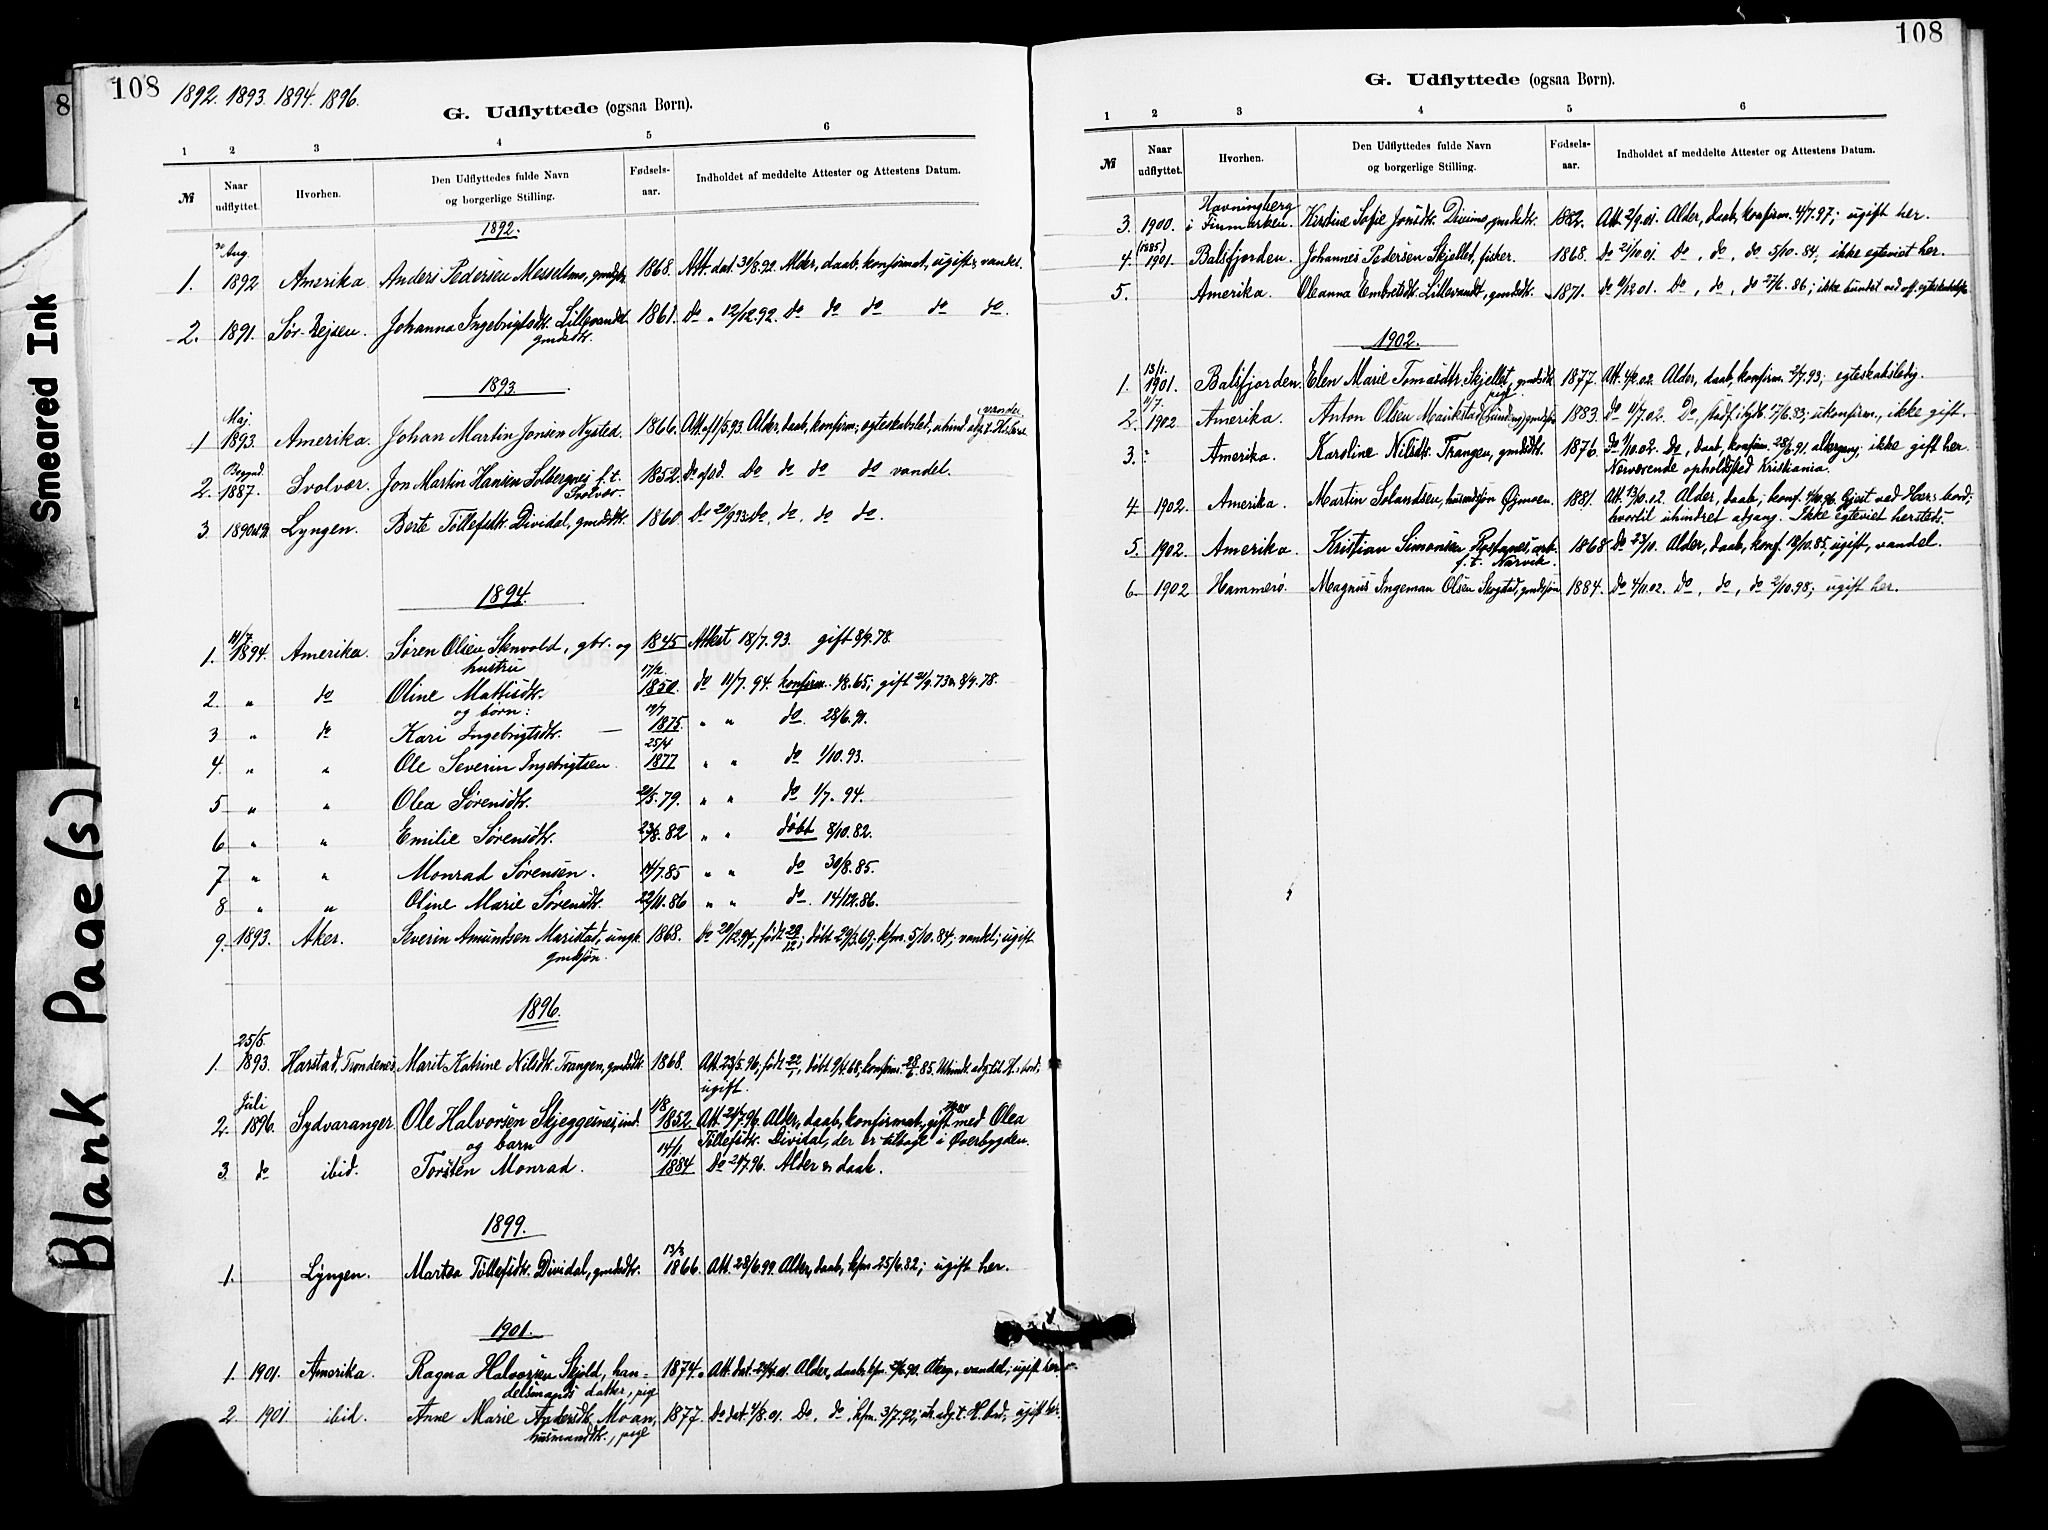 Smeared Ink
Blank Page(s)
8
108
1892. 1893. 1894. 1896.
G. Udflyttede (ogsaa Børn).
1 2 3 4 5 6
№ Naar udflyttet. Hvorhen. Den Udflyttedes fulde Navn og borgerlige Stilling. Fødsels-aar. Indholdet af meddelte Attester og Attestens Datum.
1892.
Aug.
1. 1892 Amerika Anders Pedersen Messelmo, gmdsøn 1868. Att. dat. 30/8.92. Alder, daab, konfirmat, ugift, vandel.
2. 1891. Sør-Rejsen. Johanna Ingebrigtsdtr. Lillevandet 1861. Do " 12/12.92. Do do do do do.
gmdsdtr.
1893.
Maj. vandel
1 1893. Amerika. Johan Martin Jonsen Nysted. 1866. Att. af 1/5.93. Alder, daab, konfirm; egteskabsled, uhind adg. t.
2. 1887. Svolvær. Jon Martin Hansen Solbergnes f. t. 1852. Do Do do do do vandel.
Svolvær.
3 Lyngen. Berte Tollefsdtr. Dividal, gmdsdtr. 1860. Do 21/9.93. do, do, do do.
1894.
11/7
1. 1894. Amerika. Søren Olsen Stenvold, gbr. og 1845 Attest 18/7. 93. gift 8/9.78.
hustru 17/12.
2. " do Oline Mattisdtr. 1850. do 11/7. 94. konfirm. 65; gift 8/9.78.
og børn:
3 " do Kari Ingebrigtsdtr. — 1875. " " do. 28/6.91.
25/4
4. " " Ole Severin Ingebrigtsen. 1877 " " do 1/10.93.
5 " " Olea Sørensdtr. 2/5.79. " " do 1/7. 94.
6 " " Emilie Sørensdtr. 23/8.82 " " døbt 8/10.82.
7 " " Monrad Sørensen. 14/7.85 " " do 30/8.85.
8 " " Oline Marie Sørensdtr. 22/11.86 " " do. 14/12.86.
9. 1893. Aker. Severin Amundsen Maristad, ungk. 1868. Do født 29/12; døbt 29/3.69; kfm. 5/10.84; vandel; ugift
gmdsøn.
1896.
25/5.
1 1893. Harstad, Trondenes Marit Katrine Nilsdtr. Trangen, gmdsdtr. 1868. Att. 23/5.96, født 22/1, døbt 9/4.68; konfirm. 28/6.85. Uhindr. adg. til H. bord;
ugift.
Juli 1/8
2. 1896. Sydvaranger. Ole Halvorsen Skjeggesnes, ind. 1852 Att. 24/7.96. Alder, daab, konfirmat, gift med Olea
og barn 14/1. Tollefsdtr. Dividal, der er tilbage i Øverbygden.
3. do ibid. Torsten Monrad. 1884 Do 24/7.96. Alder & daab.
1899.
13/3
1. Lyngen. Martea Tollefsdtr. Dividal, gmdsdtr. 1866. Att. 28/6.99. Alder, daab, kfm 25/6.82; ugift her.
1901.
1. 1901. Amerika. Ragna Halvorsen Skjold, han= 1874. Att. dat. Alder, daab, kfm. vandel; ugift her.
delsmands datter, pige
2 1901 ibid. Anne Marie Andersdtr. Moan, 1877. Do dat. 1/8.01. Do, do kfm. 3/7.92; uh. adg. t. H. bord; ugift her.
husmandsdtr., pige
108
G. Udflyttede (ogsaa Børn).
1 2 3 4 5 6
№ Naar udflyttet. Hvorhen. Den Udflyttedes fulde Navn og borgerlige Stilling. Fødsels-aar. Indholdet af meddelte Attester og Attestens Datum.
Havningberg
3. 1900. i Finmarken. Kerstine Sofie Jonsdtr. Devimo, gmdsdtr. 1882. Att. 2/9.01. Alder, daab, konfirm. 4/7.97; ugift her.
(1885)
4. 1901. Balsfjorden. Johannes Pedersen Skjellet, fisker. 1868. Do 21/10.01. Do, do, do 5/10.84, ikke egteviet her.
5. Amerika. Oleanna Embretsdtr. Lillevandt, gmdsdtr. 1871. Do 9/12.01. Do, do, do 27/6.86; ikke bundet ved off. egteskabsløfte
1902.
13/1.
1. 1901. Balsfjorden. Elen Marie Tomasdtr. Skjellet, gmdsdtr. 1877. Att. 4/2.02. Alder, daab, konfirm. 2/7.93; egteskabsledig.
11/7. pige
2. 1902 Amerika. Anton Olsen 1883. Do 11/7.02. Do, 17/6.83; ukonfirm., ikke gift.
3. " Amerika. Karoline Nilsdtr. Trangen, gmdsdtr. 1876. Do 1/10.02. Do, daab, konfirm. 28/6.91 altergang; ikke gift her
Nærværende opholdssted Kristiania.
4 1902. Amerika. Martin Solandsen, husmdsøn Øjmoen. 1881. Att. 13/10.02. Alder, daab, konf. 4/10.96. Gjæst ved Hær: bord;
hvortil uhindret adgang. Ikke egteviet hersteds.
5. 1902. Amerika. Kristian Simonsen Rostanes, arb. 1868 Do 23/10. Alder, daab, konf. 18/10.85, ugift, vandel.
f. t. Narvik.
6. 1902 Hammerø. Magnus Ingeman Olsen Skogstad, gmdsøn 1884. Do 4/11.02. Do, do, do 2/10.98; ugift her.